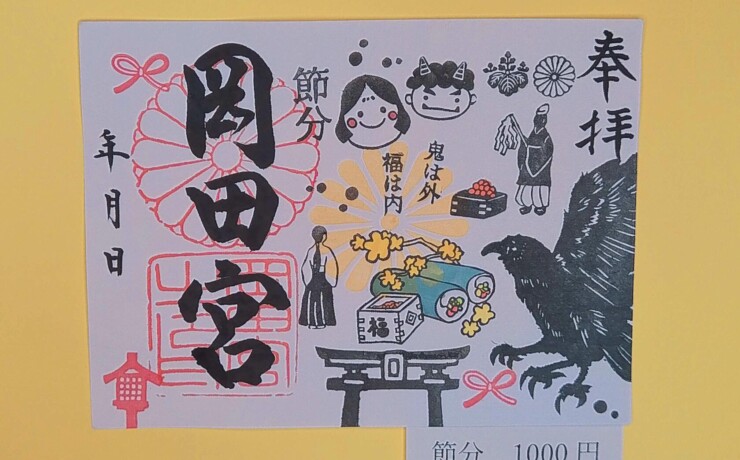 奉拝
節分
鬼は外
福は内
福
岡田宮
年月日
節分 1000円